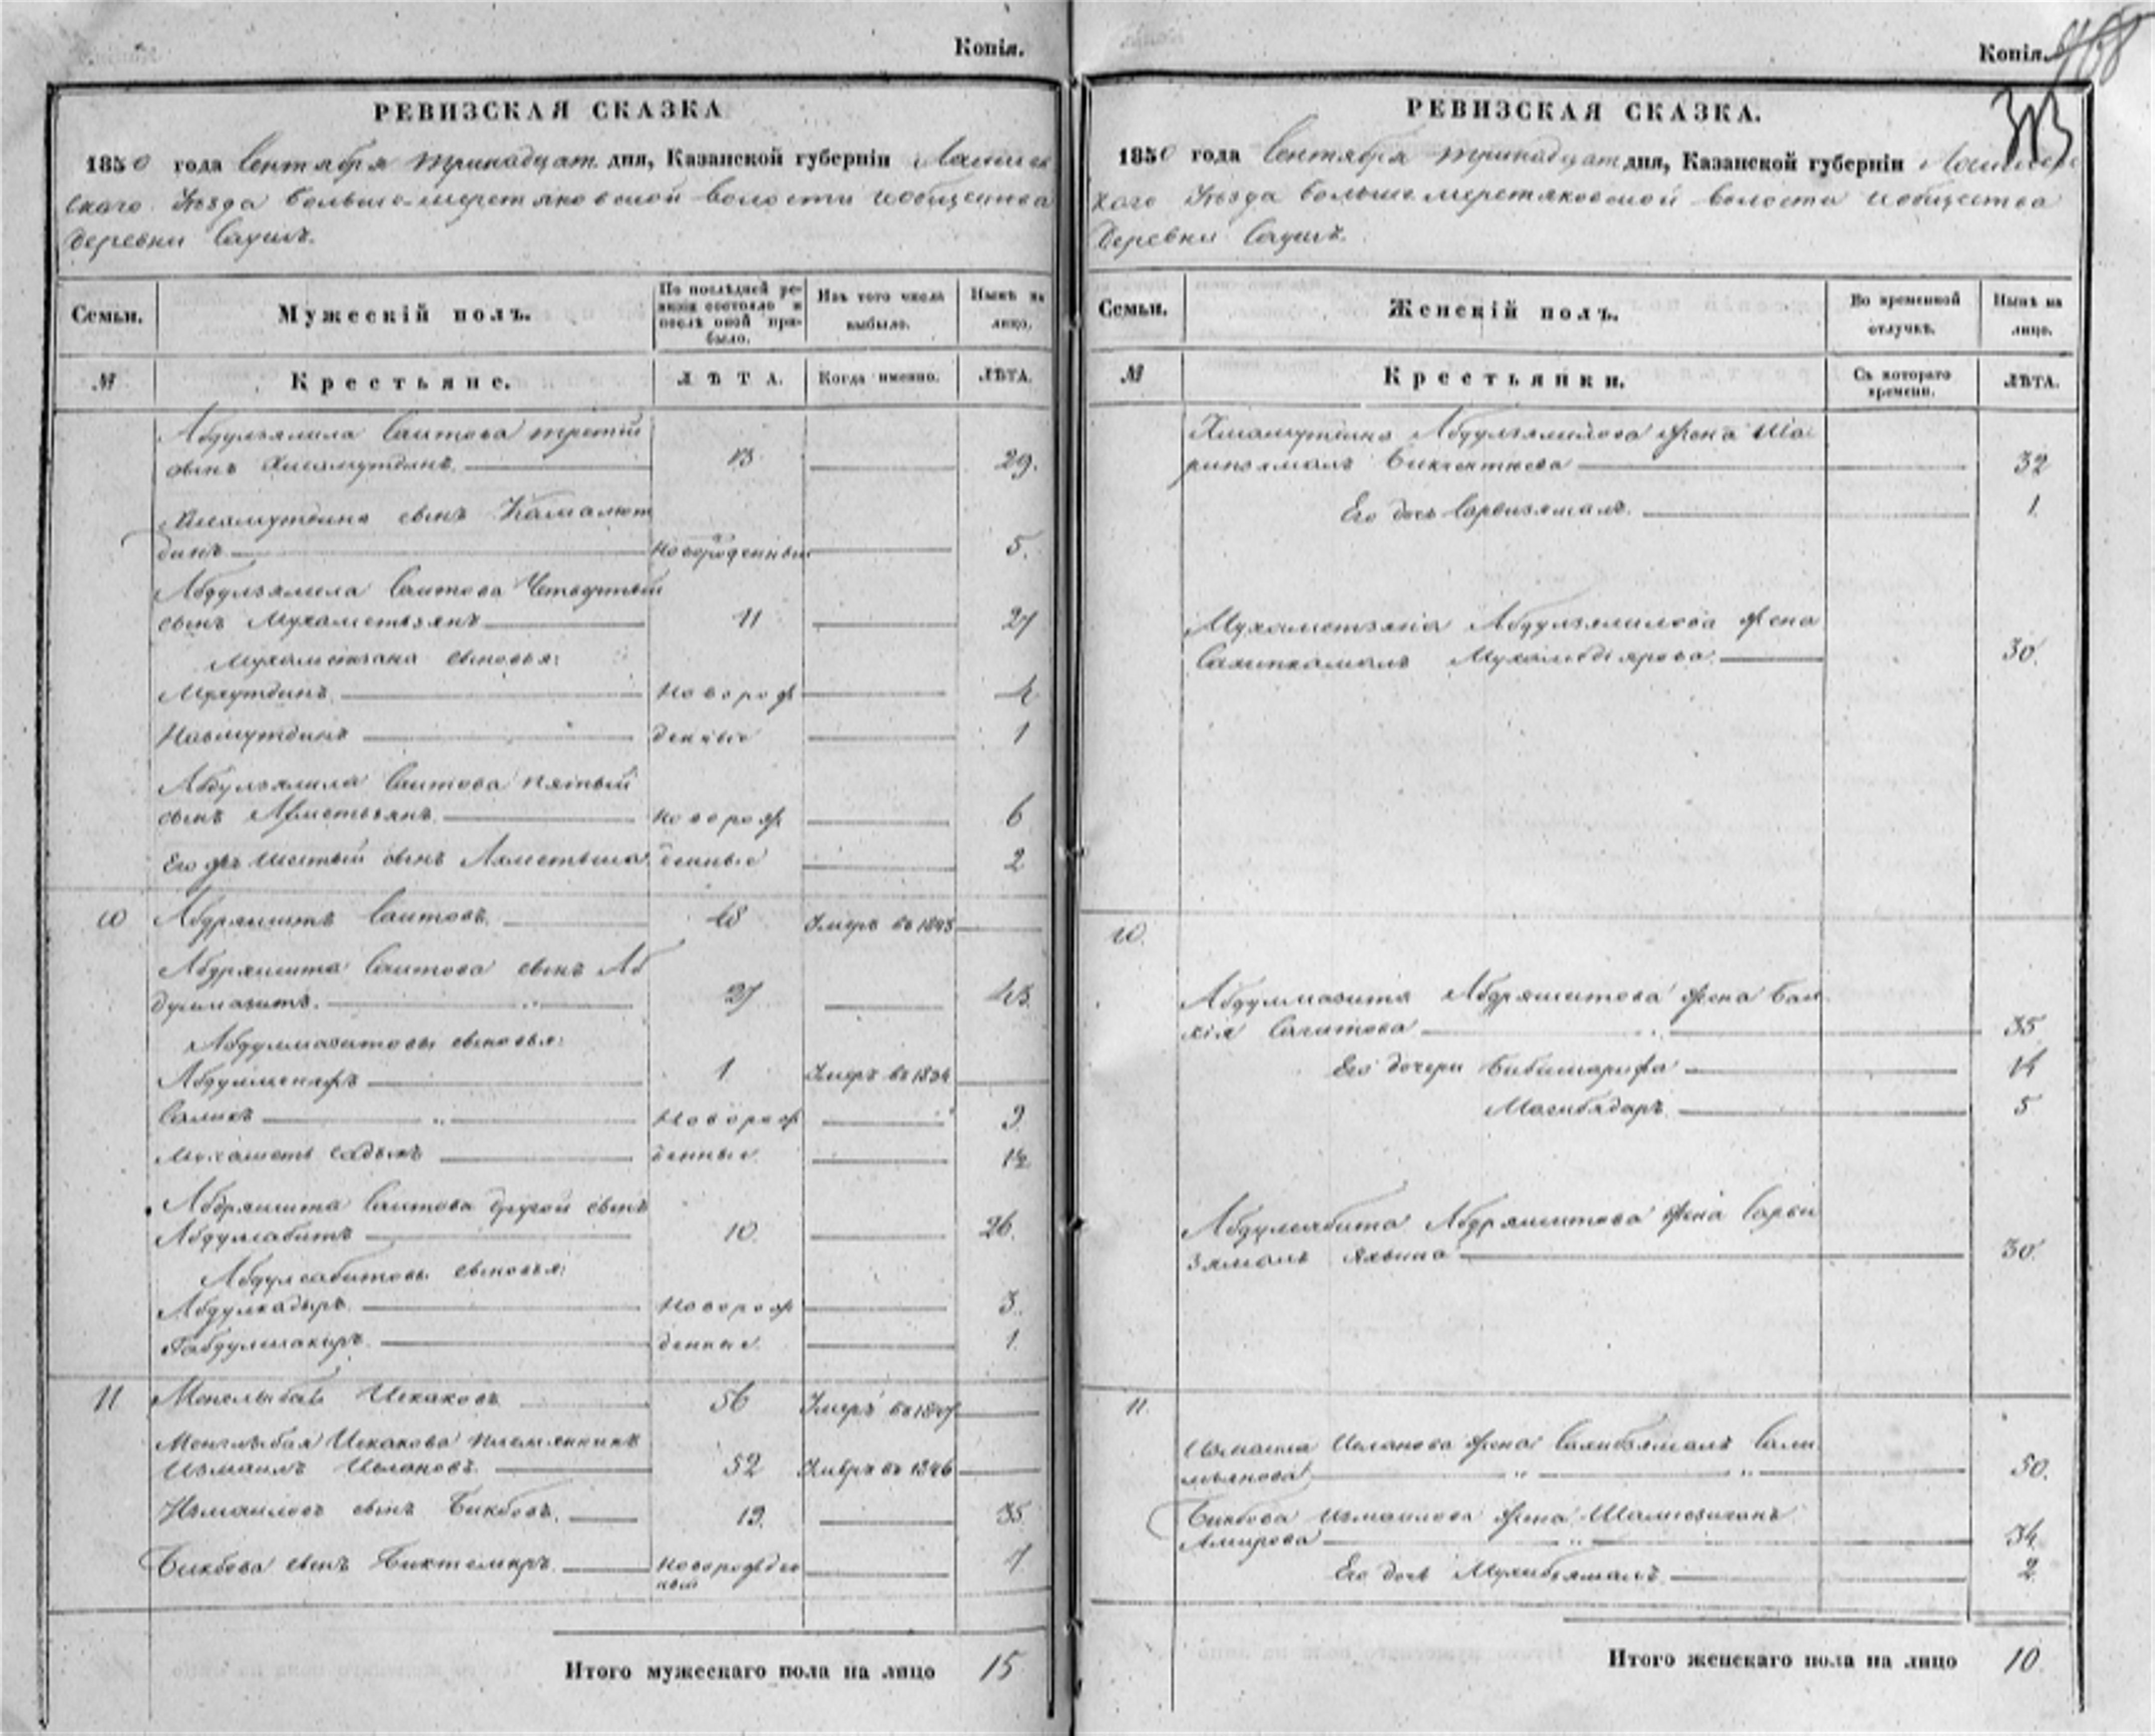 Копія.
РЕВИЗСКАЯ СКАЗКА
1850 года Сентября тринадцат. дня, Казанской губерніи Лаишев
скаго Уѣзда Больше-меретяковской волости и общества
деревни Саушъ.
Семьи.
Мужескій полъ.
По послѣдней ре-
визіи состояло и
послѣ оной при-
было.
Изъ того числа
выбыло.
Нынѣ на
лицо.
№
Крестьяне.
ЛѢТА.
Когда именно.
ЛѢТА.
Абдулзялила Саитова третій
сынъ Хисамутдинъ 13 29.
Хисамутдина сынъ Камалют
динъ Новорожденный 5.
Абдулзялила Саитова Четвертый
сынъ Мухаметзянъ 11 27
Мухаметзяна сыновья:
Новорож
денные 1
Абдулзялила Саитова пятый
сынъ Ахметзянъ новорож 6
Его жъ шестый сынъ Ахметьша денные 2
10 Абдряшитъ Саитовъ 48 Умеръ въ 1843
Абдряшита Саитова сынъ Аб
дулмазитъ. 27 43.
Абдулмазитовы сыновья:
1 Умеръ въ 1834
Салихъ Новорож 9
Мухаметъ Садыкъ денные 12
Абдряшита Саитова другой сынъ
Абдулсабитъ 10. 26.
Абдулсабитовы сыновья:
Абдулкадыръ Новорож 3.
Габдулшакиръ денные 1.
11 Исхаковъ 56 Умеръ въ 1847
Исхакова племянникъ
Измаилъ 52 Умеръ въ 1846
Измаиловъ сынъ Бикбовъ. 19. 35
Бикбова сынъ Биктемиръ Новорожден
ный 7
Итого мужескаго пола на лицо 15
Копія.
313
РЕВИЗСКАЯ СКАЗКА.
1850 года Сентября тринадцат дня, Казанской губерніи Лаишевс
каго Уѣзда Больше меретяковской волости и общества
Деревни Саушъ.
Семьи.
Женскій полъ.
Во временной
отлучкѣ.
Нынѣ на
лицо.
№
Крестьянки.
Съ котораго
времени.
ЛѢТА.
Хисамутдина Абдулзялилова жена Ша
рипзямалъ 32
Его дочь Сарвизямалъ. 1.
Мухаметзяна Абдулзялилова жена
Мухамедіярова. 30.
10.
Абдулмазита Абдряшитова жена Бал
хія Сагитова 35
Его дочери Бибишарифа 14
Магибядаръ 5
Абдулсабита Абдряшитова жена Сарви
зямалъ Яхьина 30.
11.
Измаила жена
50.
Бикбова Измаилова жена
Амирова 34
Его дочь Мухибзямалъ 2.
Итого женскаго пола на лицо 10